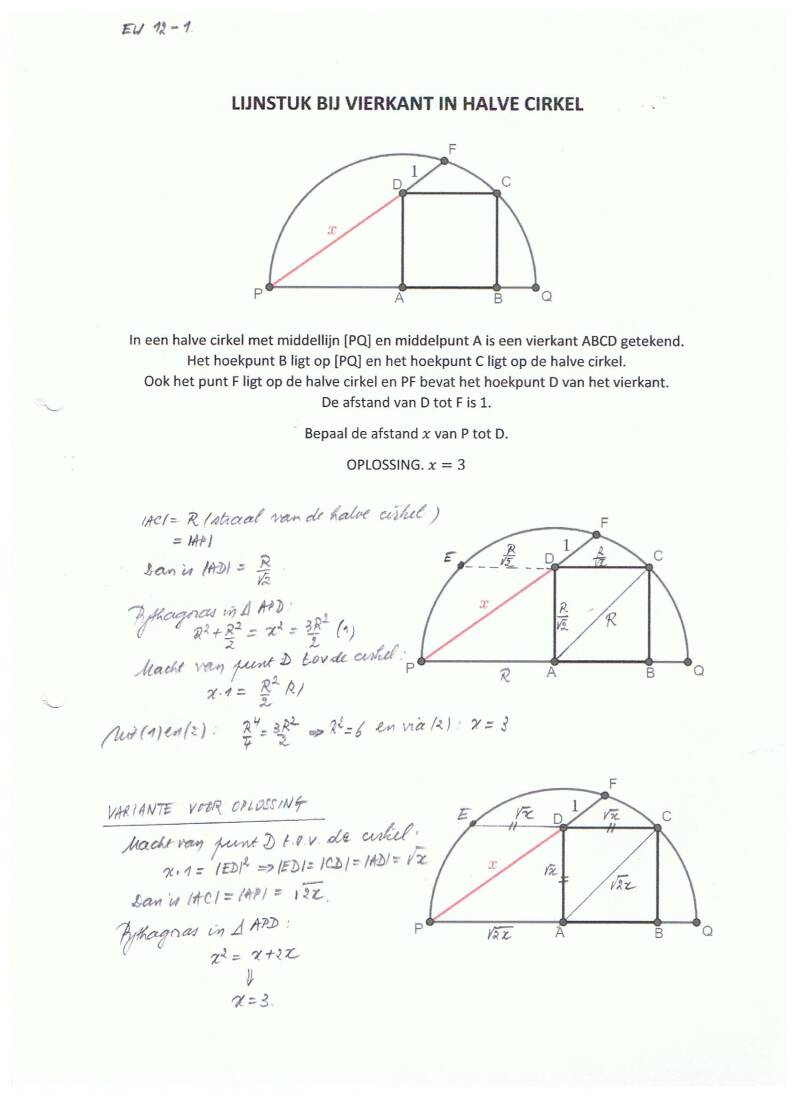 EU 12-1.
LIJNSTUK BIJ VIERKANT IN HALVE CIRKEL
F
1
D
C
x
P
A
B
Q
In een halve cirkel met middellijn [PQ] en middelpunt A is een vierkant ABCD getekend.
Het hoekpunt B ligt op [PQ] en het hoekpunt C ligt op de halve cirkel.
Ook het punt F ligt op de halve cirkel en PF bevat het hoekpunt D van het vierkant.
De afstand van D tot F is 1.
Bepaal de afstand x van P tot D.
OPLOSSING. x = 3
|AC| = R (straal van de halve cirkel)
= |AP|
Dan is |AD| = R/√2
Pythagoras in Δ APD:
R² + R²/2 = x² = 3R²/2 (1)
Macht van punt D tov de cirkel:
x·1 = R²/2
Uit (1) en (2): R⁴/4 = 3R²/2 ⇒ R² = 6 en via (2): x = 3
F
1
E
R/√2
D
R/√2
C
x
R/√2
R
P
R
A
B
Q
VARIANTE VOOR OPLOSSING
Macht van punt D t.o.v. de cirkel:
x·1 = |ED|² ⇒ |ED| = |CD| = |AD| = √x
Dan is |AC| = |AP| = √2x.
Pythagoras in Δ APD:
x² = x + 2x
⇓
x = 3.
F
E
√x
1
√x
D
C
x
√x
√2x
P
√2x
A
B
Q